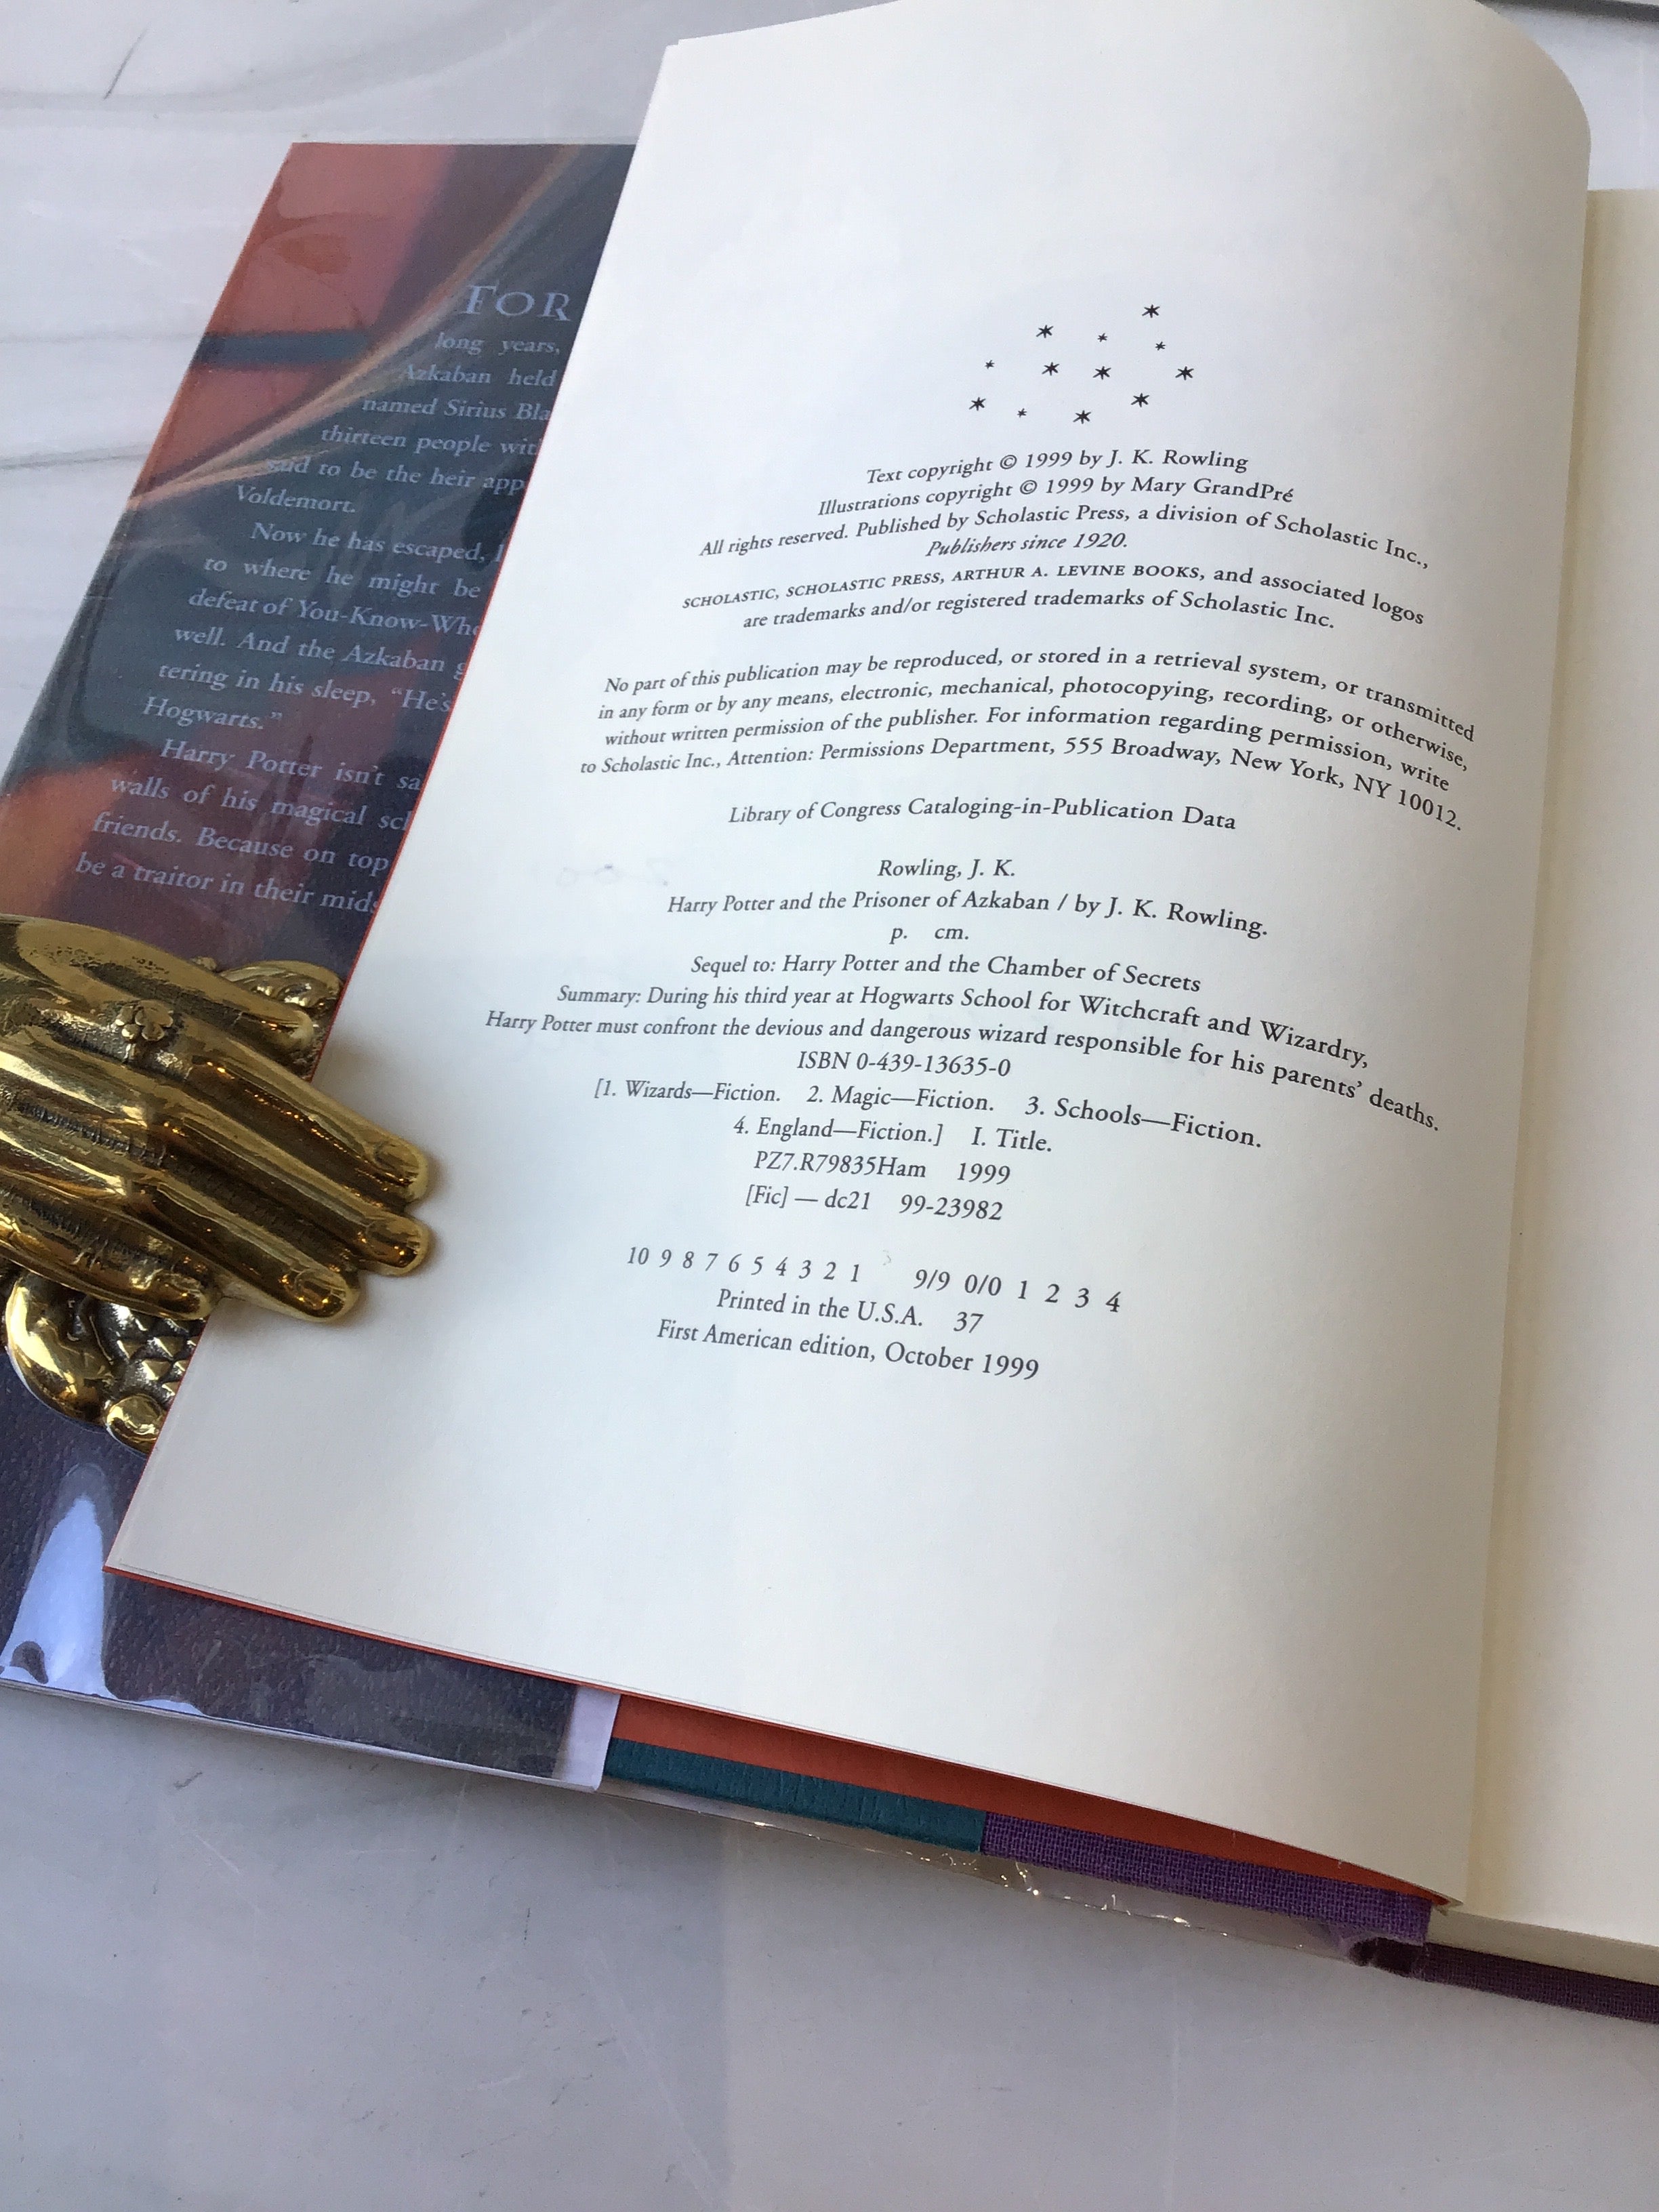 FOR
long years,
Azkaban held
named Sirius Bla
thirteen people wit
said to be the heir app
Voldemort.
Now he has escaped, l
to where he might be
defeat of You-Know-Who
well. And the Azkaban g
tering in his sleep, “He’s
Hogwarts.”
Harry Potter isn’t sa
walls of his magical sch
friends. Because on top
be a traitor in their mids
Text copyright © 1999 by J. K. Rowling
Illustrations copyright © 1999 by Mary GrandPré
All rights reserved. Published by Scholastic Press, a division of Scholastic Inc.,
Publishers since 1920.
SCHOLASTIC, SCHOLASTIC PRESS, ARTHUR A. LEVINE BOOKS, and associated logos
are trademarks and/or registered trademarks of Scholastic Inc.
No part of this publication may be reproduced, or stored in a retrieval system, or transmitted
in any form or by any means, electronic, mechanical, photocopying, recording, or otherwise,
without written permission of the publisher. For information regarding permission, write
to Scholastic Inc., Attention: Permissions Department, 555 Broadway, New York, NY 10012.
Library of Congress Cataloging-in-Publication Data
Rowling, J. K.
Harry Potter and the Prisoner of Azkaban / by J. K. Rowling.
p. cm.
Sequel to: Harry Potter and the Chamber of Secrets
Summary: During his third year at Hogwarts School for Witchcraft and Wizardry,
Harry Potter must confront the devious and dangerous wizard responsible for his parents’ deaths.
ISBN 0-439-13635-0
[1. Wizards—Fiction. 2. Magic—Fiction. 3. Schools—Fiction.
4. England—Fiction.] I. Title.
PZ7.R79835Ham 1999
[Fic] — dc21 99-23982
10 9 8 7 6 5 4 3 2 1 9/9 0/0 1 2 3 4
Printed in the U.S.A. 37
First American edition, October 1999